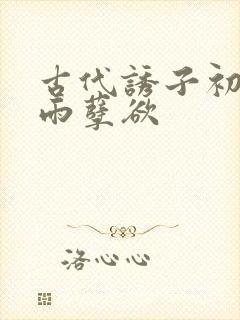 古代誘子初
雨孽欲
洛心心